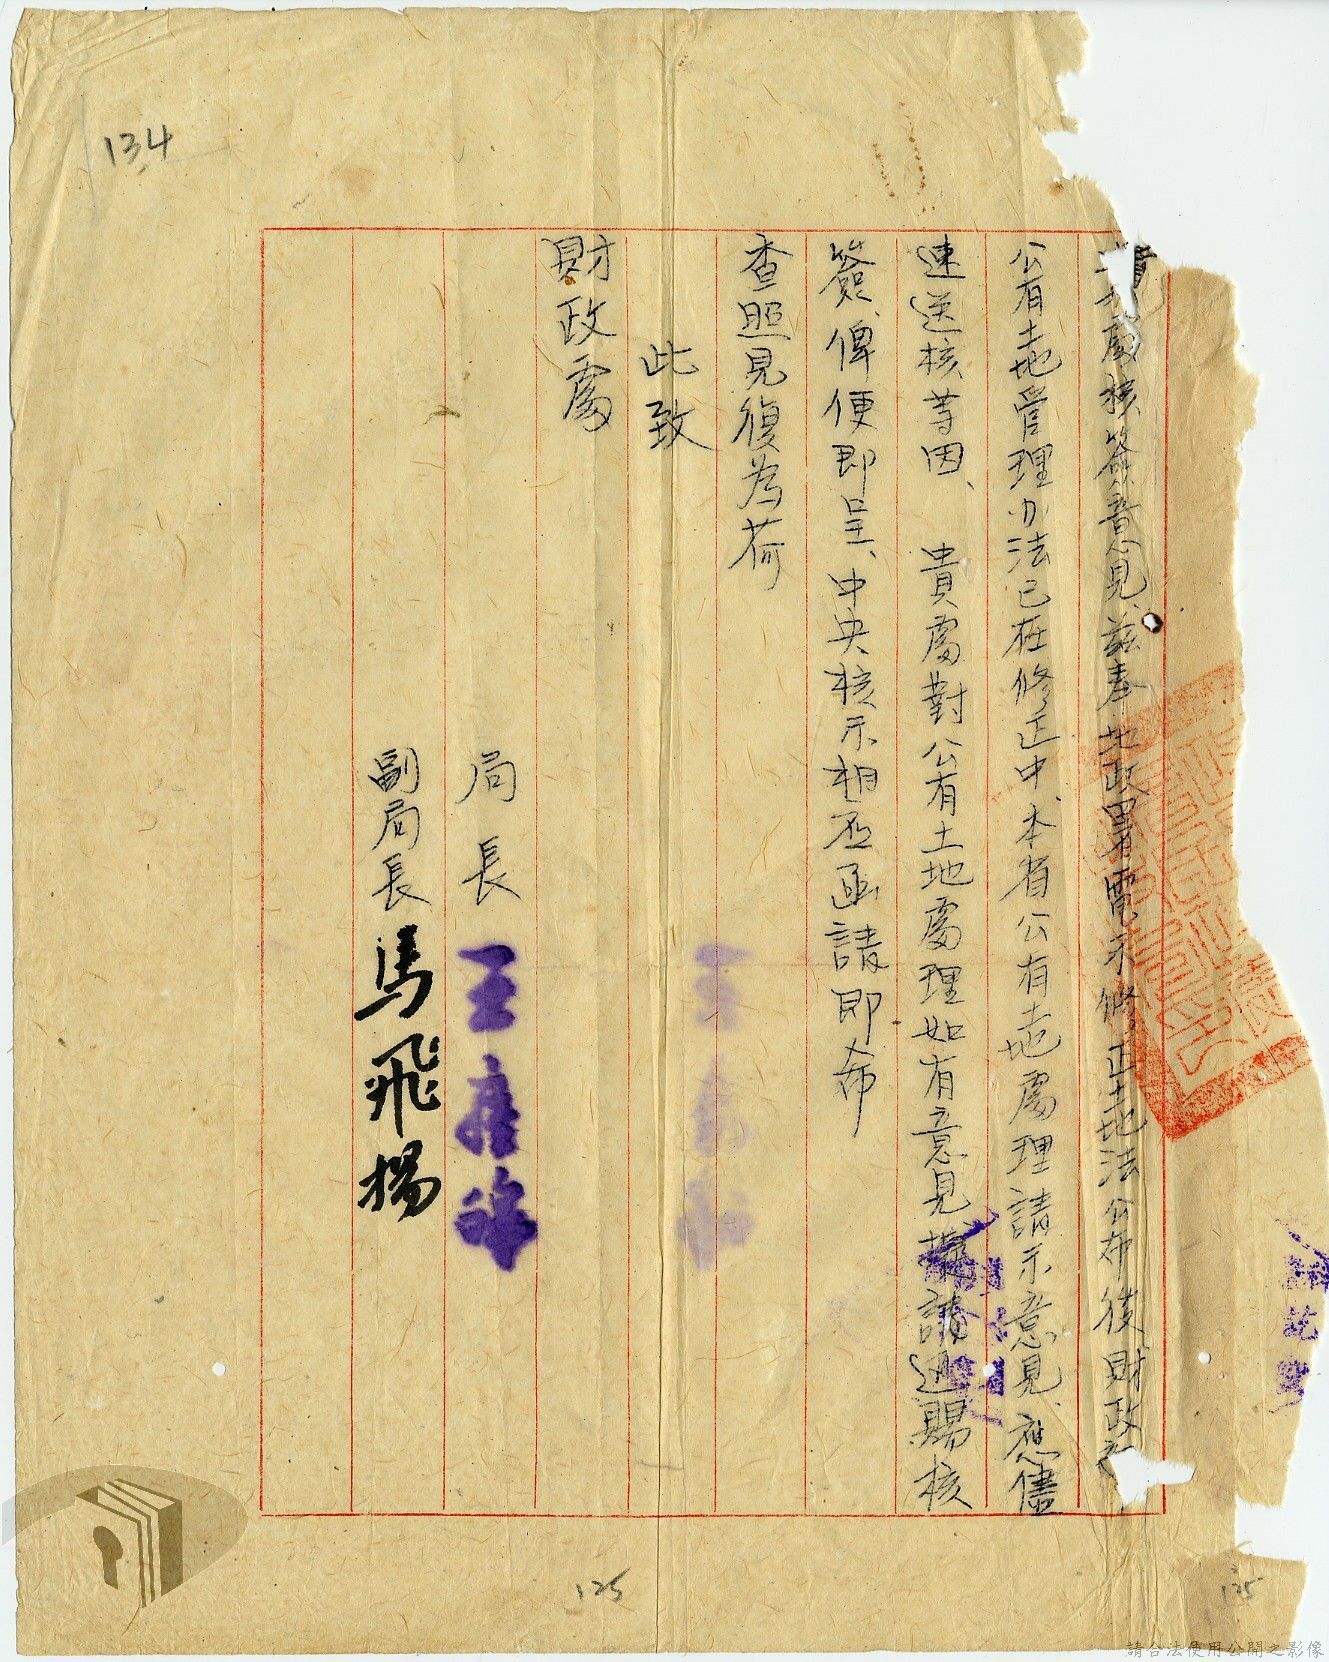 134
處核簽意見、茲奉 地政署電示修正土地法公布後財政
公有土地管理办法已在修正中本省公有土地處理請示意見、應儘
速送核等因、 貴處對公有土地處理如有意見擬請迅賜核
簽、俾便即呈、中央核示相應函請即希
查照見復為荷
此致
財政處
局長 王
副局長 馬飛揚
125
125
請合法使用公開之影像